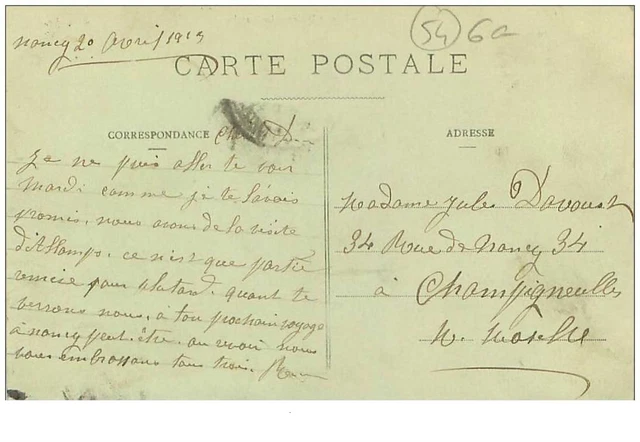 Nancy 20 Avril 1913
54 6a
CARTE POSTALE
CORRESPONDANCE
Je ne puis aller te voir
Mardi comme je te l'avais
promis, nous avons de la visite
d'Allamps. ce n'est que partie
remise pour plutard. quant te
verrons nous, a ton prochain voyage
à Nancy peut-être. au revoir nous
vous embrassons tous trois.
ADRESSE
Madame Jules Davoust
34 Rue de Nancy 34
à Champigneulles
M. Moselle